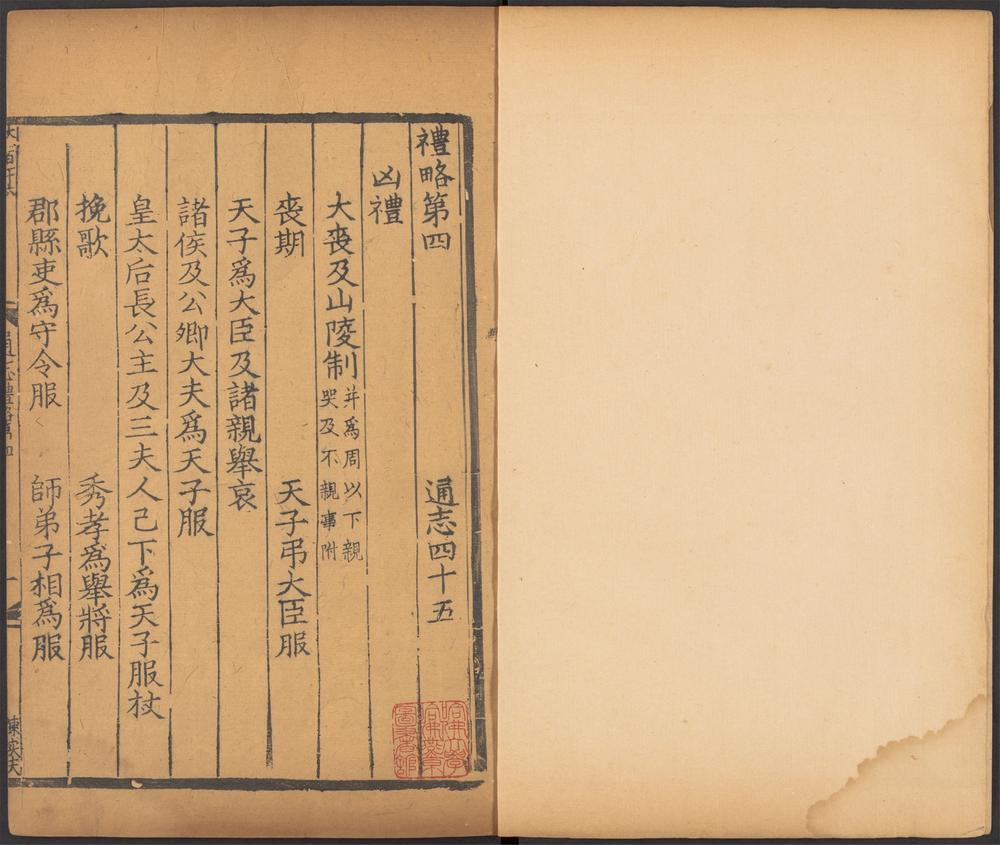 禮略第四 通志四十五
凶禮
大喪及山陵制 并為周以下親
哭及不親事附
喪期 天子弔大臣服
天子爲大臣及諸親舉哀
諸侯及公卿大夫爲天子服
皇太后長公主及三夫人已下爲天子服杖
挽歌 秀孝爲舉將服
郡縣吏爲守令服 師弟子相爲服
哈佛大學哈佛燕京圖書館